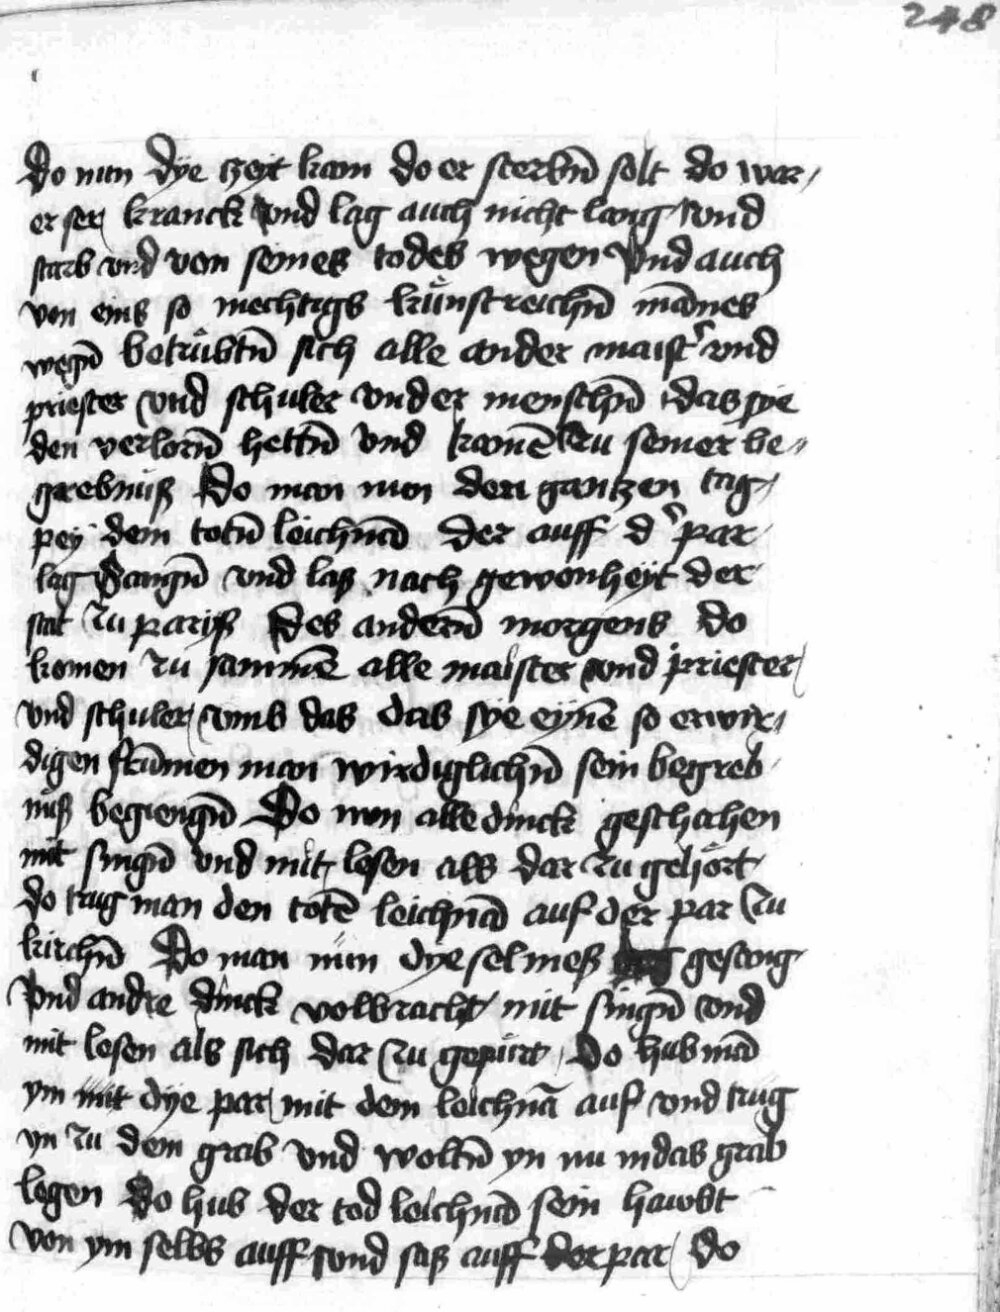 248
Do nun dye zeyt kam do er sterbn̄ solt do war
er ser kranck vnd lag auch nicht lang vnd
starb vnd von seines todes wegen vnd auch
von eins so mechtigs künstreichn̄ mānes
wegn̄ betrübtn̄ sich alle ander maist̉ vnd
priester vnd schuler vnder menschn̄ das sye
den verlorn̄ hettn̄ vnd komē zu seiner be
grebnüß Do man nun den gantzen tag
pey dem totn̄ leichnā der auff d̉ par
lag Sangn̄ vnd laß nach gewonheyt der
stat zu pariß Des andern̄ morgens do
komen zu sammē alle maister vnd priester
vnd schuler vmb das das sye eynē so erwir
digen frūmen man wirdiglichn̄ sein begreb
nüß begiengn̄ Do nun alle dinck geschahen
mit singn̄ vnd mit lesen als dar zu gehört
do trug man den totē leichnā auf der par zu
kirchn̄ Do man nün dye selmeß gesang
Vnd andre dinck volbracht mit singn̄ vnd
mit lesen als sich dar zu gepürt Do hub mā
ym mit dye par mit dem leichnā auf vnd trug
yn zu dem grab vnd woltn̄ yn nu in das grab
legen Do hub der tod leichnā sein haubt
von ym selbs auff vnd saß auff der par Do